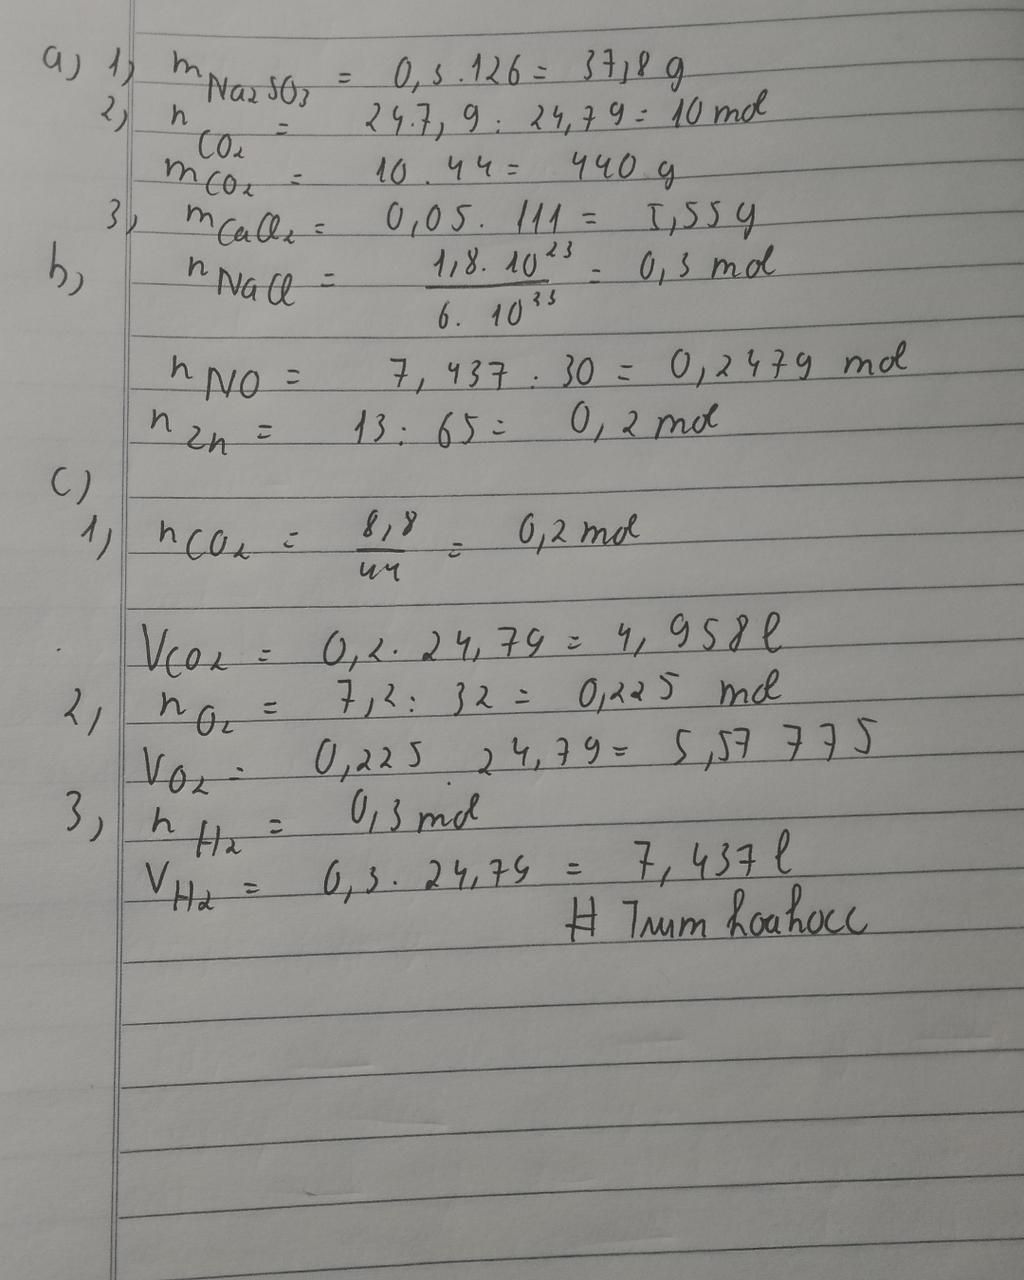 a) 1) m Na2SO3 = 0,3 . 126 = 37,8 g
2) n CO2 = 247,9 : 24,79 = 10 mol
m CO2 = 10 . 44 = 440 g
3) m CaCl2 = 0,05 . 111 = 5,55 g
b) n NaCl = 1,8 . 10^23 / 6 . 10^23 = 0,3 mol
n NO = 7,437 : 30 = 0,2479 mol
n Zn = 13 : 65 = 0,2 mol
c)
1) n CO2 = 8,8 / 44 = 0,2 mol
V CO2 = 0,2 . 24,79 = 4,958 l
2) n O2 = 7,2 : 32 = 0,225 mol
V O2 = 0,225 . 24,79 = 5,57775
3) n H2 = 0,3 mol
V H2 = 0,3 . 24,79 = 7,437 l